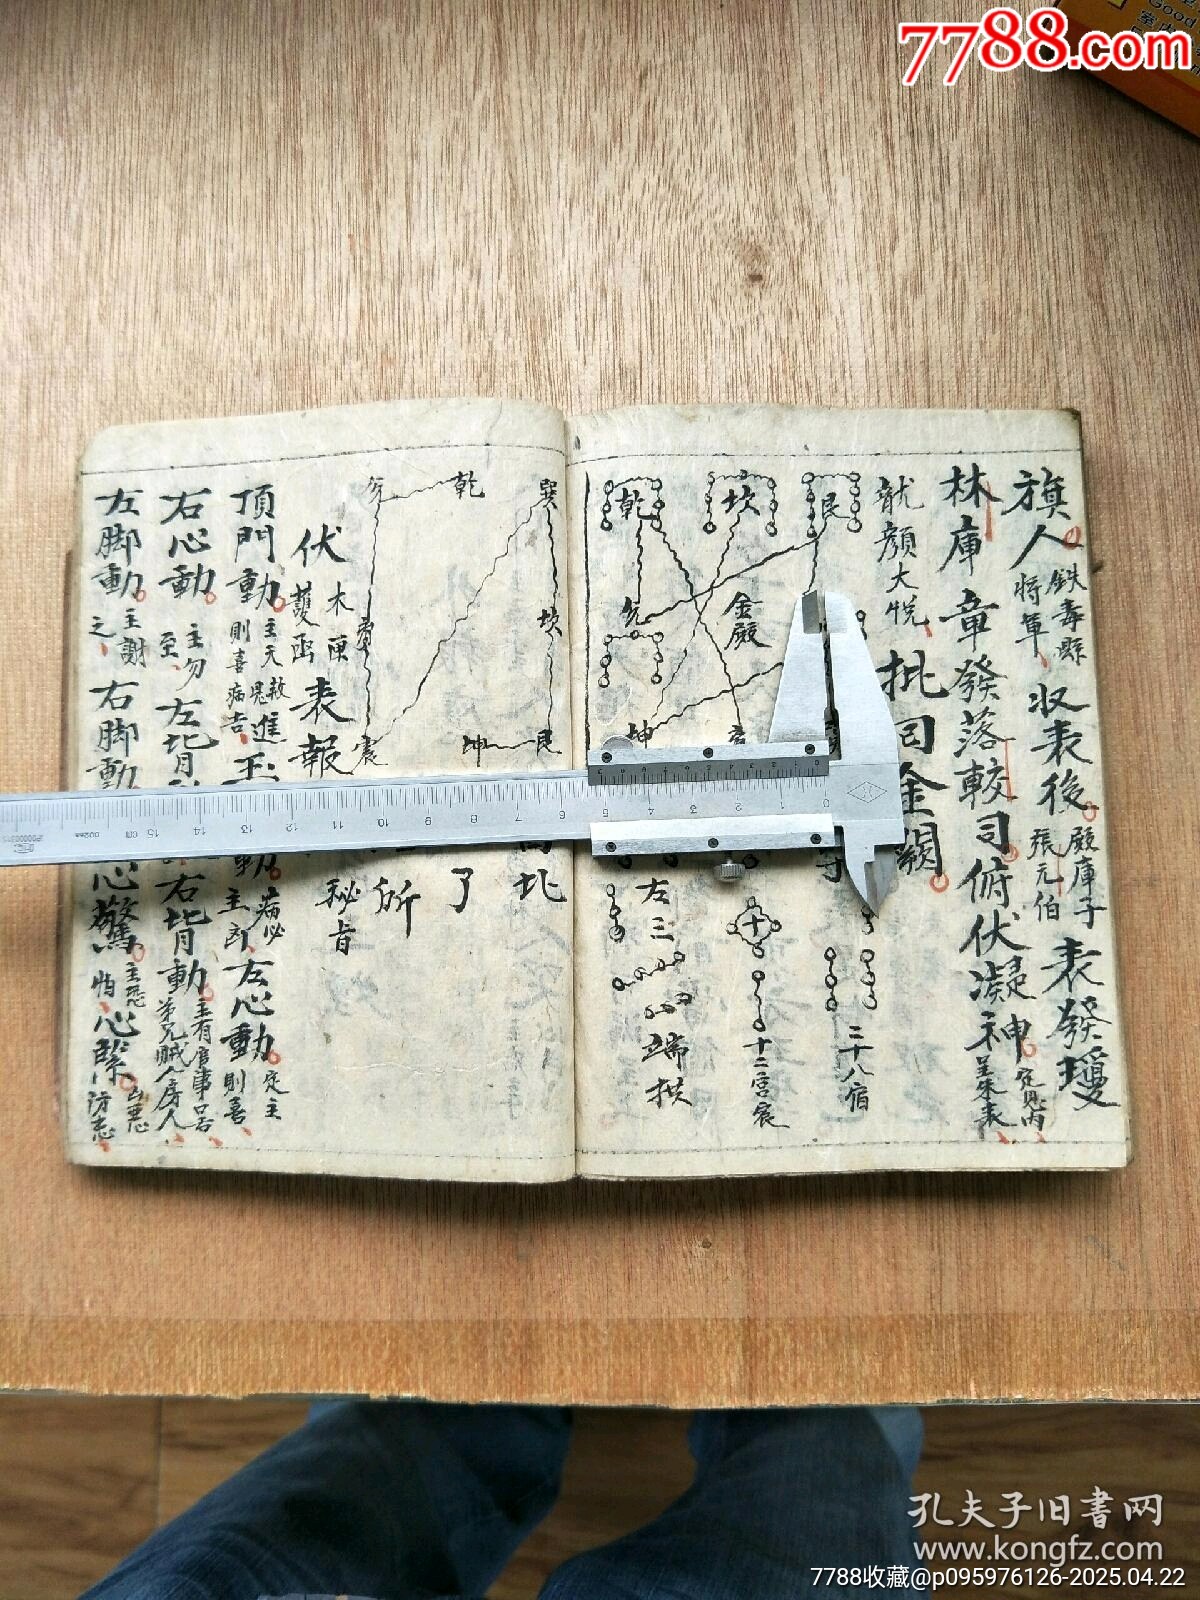 7788.com
Good
旗人 鉄壽縣 將軍 收表後 殿庫子 張元伯 表發瓊
林庫章發落較司俯伏凝神 定見內 呈朱表
龍顏大悅 批回金闕
二十八宿
艮
坎 金殿 十 十二宮宸
乾 兊 坤 左三 端拱
巽 坎 艮
乾 坤 了
兊 震 所
木 匣 秘旨
伏 護函 表報
頂門動 主天赦 則喜 病吉 進玉 病必 主凶 左心動 定主 則喜
右心動 主勿 至 左背 右背動 主有官事口舌 弟兄賊人房人
左脚動 主謝 之 右脚動 心驚 主恐 怕 心
孔夫子旧书网
www.kongfz.com
7788收藏@p095976126-2025.04.22